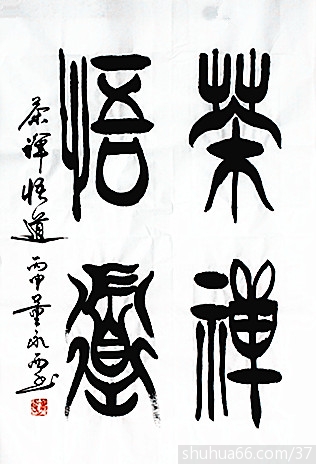 茶禪
悟道
茶禪悟道 丙申董永
shuhua66.com/37